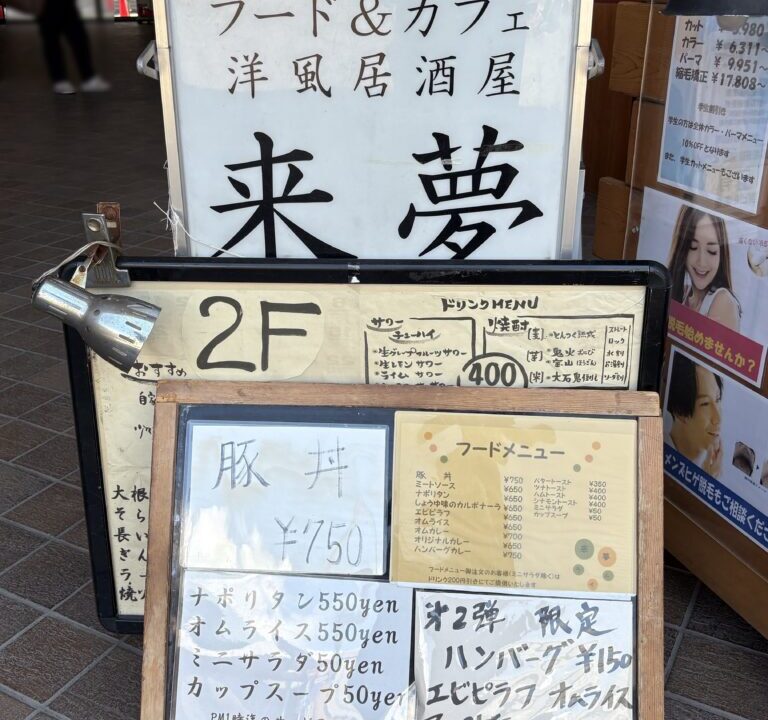 フード&カフェ
洋風居酒屋
来夢
2F
おすすめ
ドリンクMENU
サワー
チューハイ
・生グレープフルーツサワー
・生レモンサワー
・ライムサワー
400
焼酎
[麦]
[芋]
[米]
ストレート
ロック
水割
お湯割
ソーダ割
豚丼
¥750
フードメニュー
豚丼 ¥750
ミートソース ¥650
ナポリタン ¥650
しょうゆ味のカルボナーラ ¥650
エビピラフ ¥650
オムライス ¥650
オムカレー ¥700
オリジナルカレー ¥650
ハンバーグカレー ¥750
バタートースト ¥350
ツナトースト ¥400
ハムトースト ¥400
シナモントースト ¥400
ミニサラダ ¥50
カップスープ ¥50
フードメニュー御注文のお客様(ミニサラダ除く)は
ドリンク200円引きにてご提供いたします
ナポリタン550yen
オムライス550yen
ミニサラダ50yen
カップスープ50yen
第2弾 限定
ハンバーグ ¥150
エビピラフ オムライス
カット ¥3,980
カラー ¥6,311〜
パーマ ¥9,951〜
縮毛矯正 ¥17,808〜
学生割引き
学生の方は全体カラー・パーマメニュー
10%OFFとなります
また、学生カットメニューもございます
脱毛始めませんか?
メンズヒゲ脱毛もご相談くださ